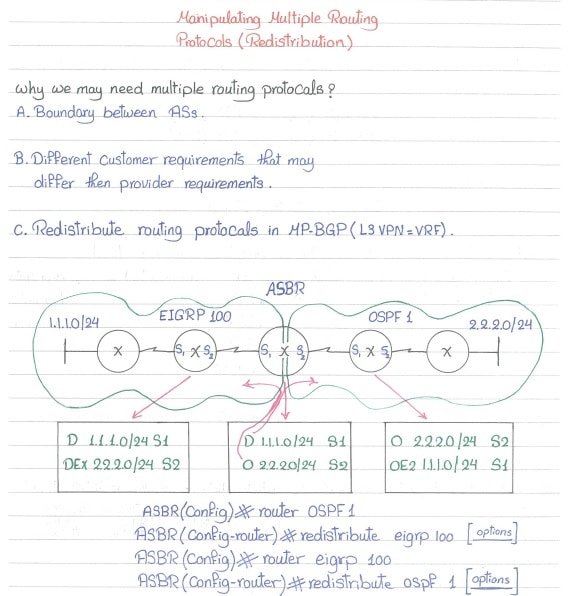 Manipulating Multiple Routing
Protocols (Redistribution)
why we may need multiple routing protocals?
A. Boundary between ASs.
B. Different Customer requirements that may
differ then provider requirements.
C. Redistribute routing protocals in MP-BGP (L3 VPN = VRF).
ASBR
1.1.1.0/24 EIGRP 100 OSPF 1 2.2.2.0/24
X S1 X S2 S1 X S2 S1 X S2 X
D 1.1.1.0/24 S1
DEX 2.2.2.0/24 S2
D 1.1.1.0/24 S1
O 2.2.2.0/24 S2
O 2.2.2.0/24 S2
OE2 1.1.1.0/24 S1
ASBR(Config)# router OSPF 1
ASBR(Config-router)# redistribute eigrp 100 [options]
ASBR(Config)# router eigrp 100
ASBR(Config-router)# redistribute ospf 1 [options]